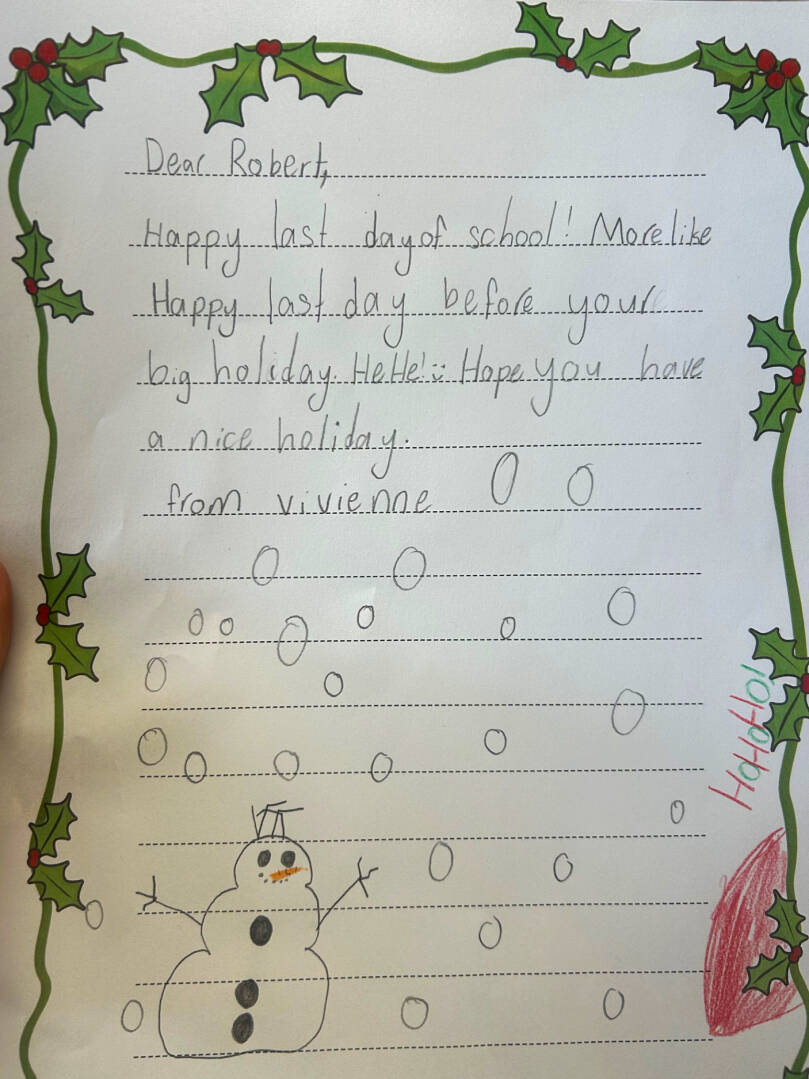 Dear Robert,
Happy last day of school! More like
Happy last day before your
big holiday. HeHe! :) Hope you have
a nice holiday.
from vivienne
HoHoHo!